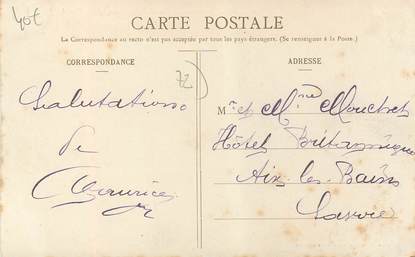 40€
CARTE POSTALE
La Correspondance au recto n'est pas acceptée par tous les pays étrangers. (Se renseigner à la Poste.)
CORRESPONDANCE
ADRESSE
72
Salutations
de
Maurice
Mr et Mme Mouchet
Hôtel Britannique
Aix-les-Bains
Savoie